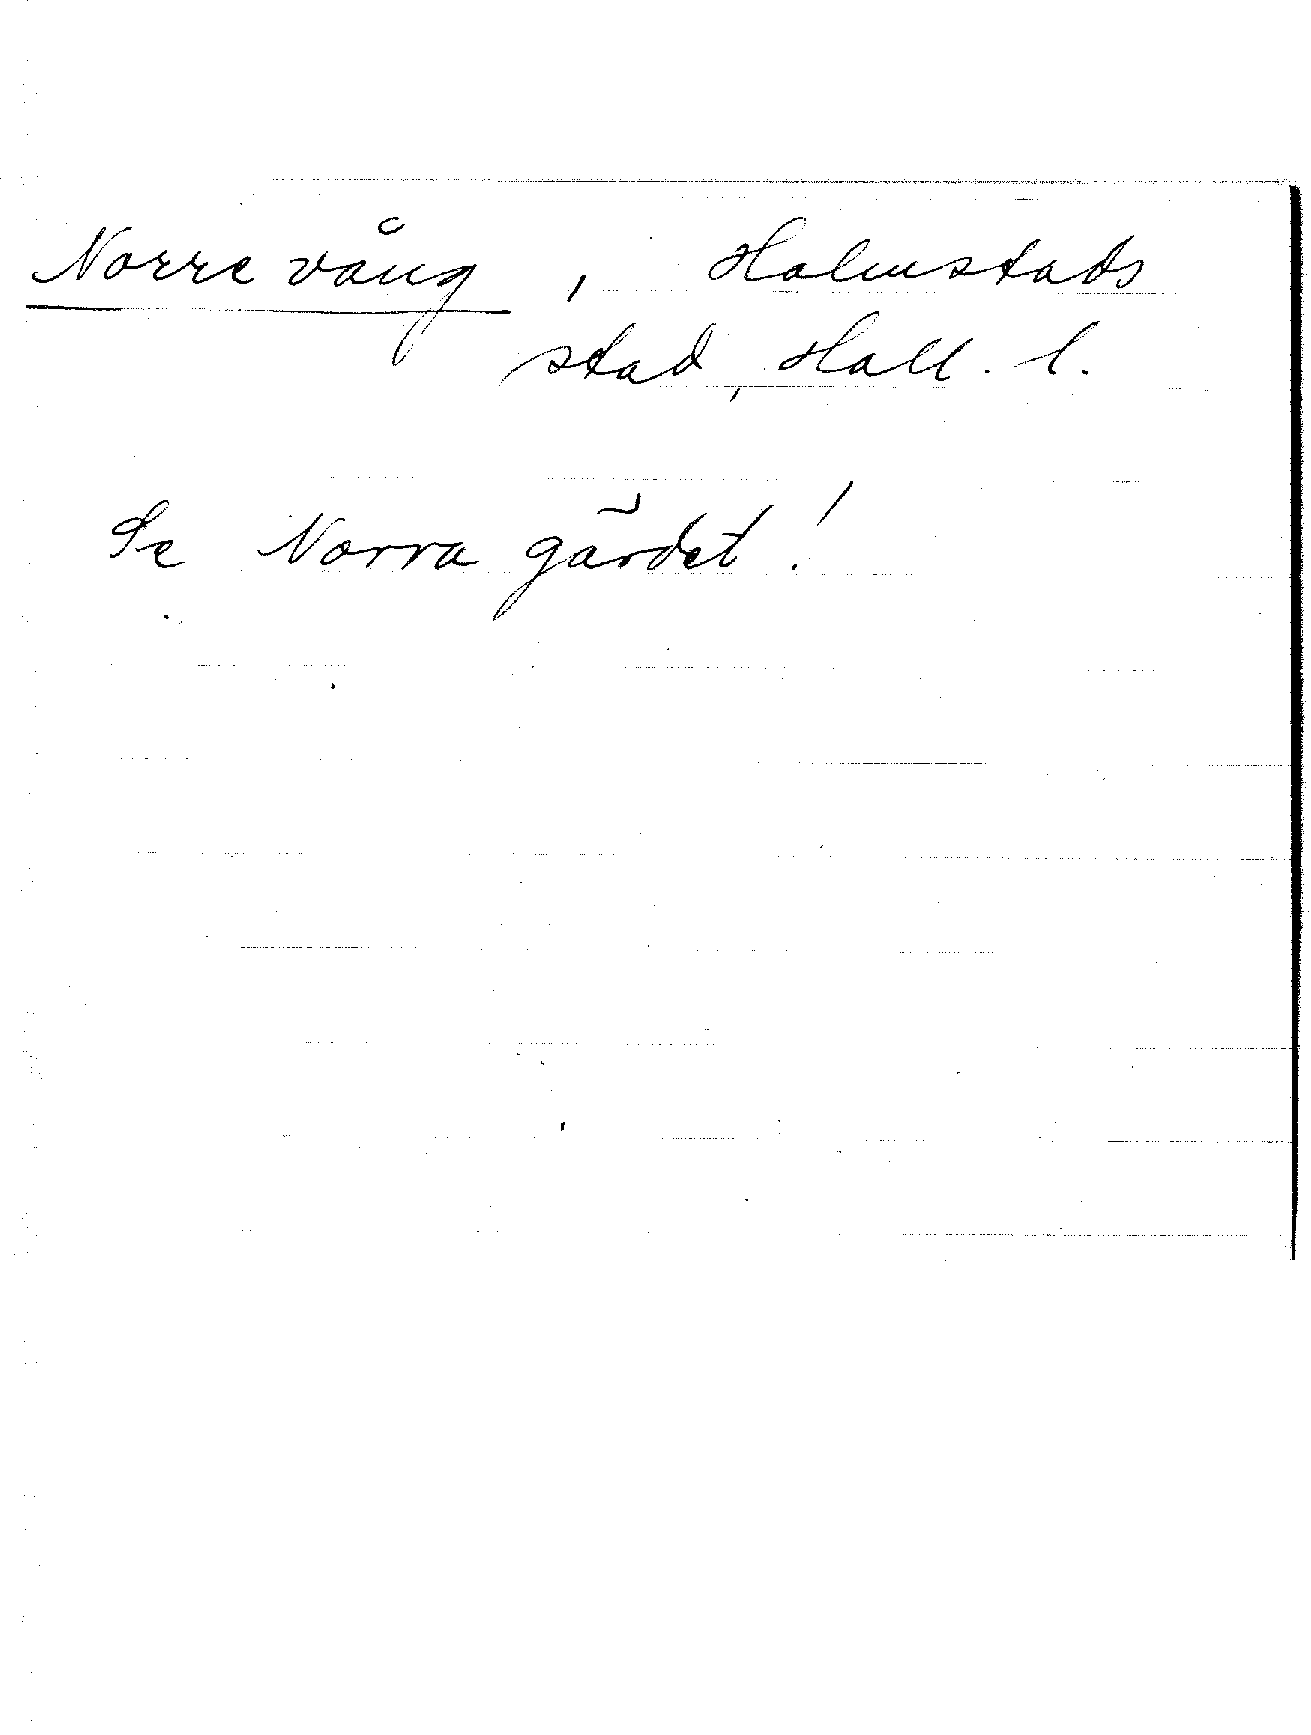 Norre vång, Halmstads
stad, Hall. l.
Se Norra gärdet!